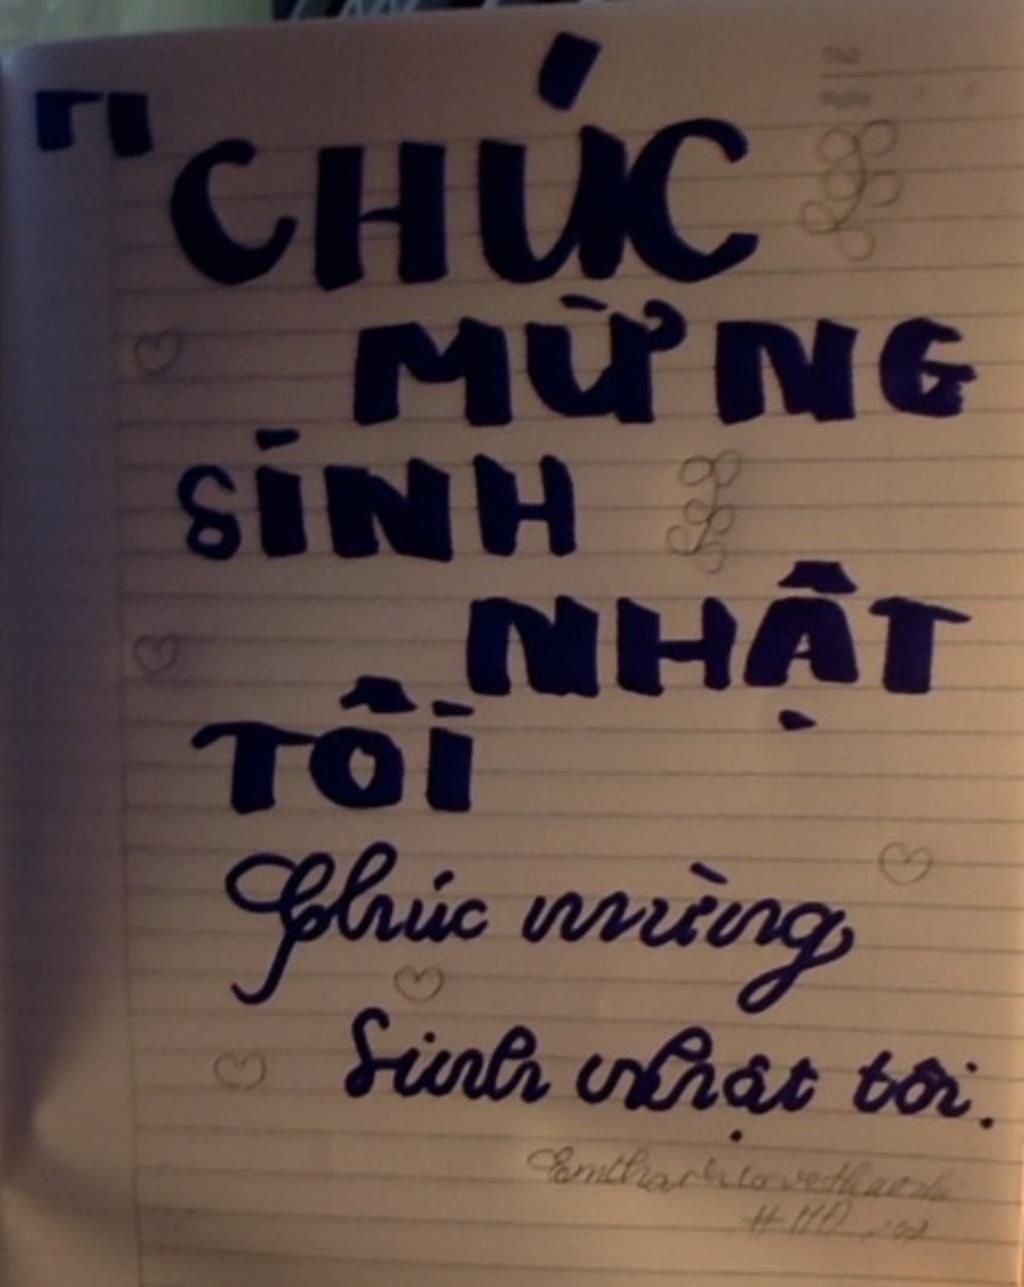 Thứ
Ngày / /
"CHÚC
MỪNG
SINH
NHẬT
TÔI
Chúc mừng
Sinh nhật tôi.